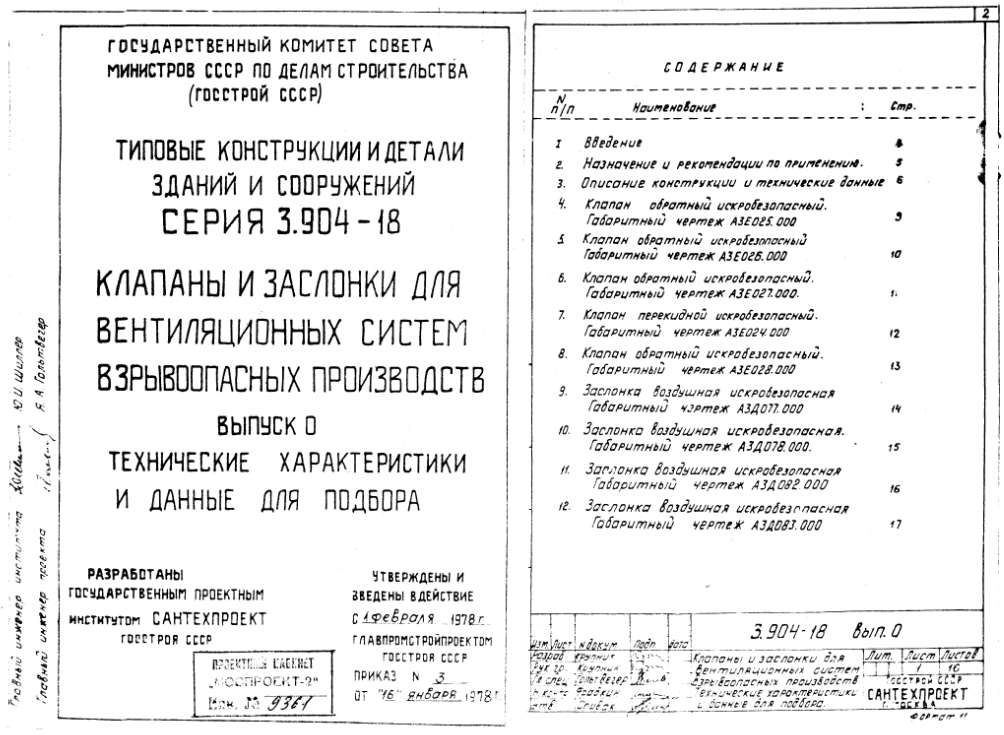 ГОСУДАРСТВЕННЫЙ КОМИТЕТ СОВЕТА
МИНИСТРОВ СССР ПО ДЕЛАМ СТРОИТЕЛЬСТВА
(ГОССТРОЙ СССР)
ТИПОВЫЕ КОНСТРУКЦИИ И ДЕТАЛИ
ЗДАНИЙ И СООРУЖЕНИЙ
СЕРИЯ 3.904-18
КЛАПАНЫ И ЗАСЛОНКИ ДЛЯ
ВЕНТИЛЯЦИОННЫХ СИСТЕМ
ВЗРЫВООПАСНЫХ ПРОИЗВОДСТВ
ВЫПУСК 0
ТЕХНИЧЕСКИЕ ХАРАКТЕРИСТИКИ
И ДАННЫЕ ДЛЯ ПОДБОРА
РАЗРАБОТАНЫ
ГОСУДАРСТВЕННЫМ ПРОЕКТНЫМ
ИНСТИТУТОМ САНТЕХПРОЕКТ
ГОССТРОЯ СССР
УТВЕРЖДЕНЫ И
ВВЕДЕНЫ В ДЕЙСТВИЕ
С 1 февраля 1978 г.
ГЛАВПРОМСТРОЙПРОЕКТОМ
ГОССТРОЯ СССР
ПРИКАЗ N 3
ОТ "16" января 1978 г.
ПРОЕКТНЫЙ КАБИНЕТ
"МОСПРОЕКТ-2"
Инв. № 9361
Главный инженер института Ю.И. Шиллер
Главный инженер проекта Я.А. Гольтвегер
2
СОДЕРЖАНИЕ
N п/п Наименование : Стр.
1 Введение 4
2. Назначение и рекомендации по применению. 5
3. Описание конструкции и технические данные 6
4. Клапан обратный искробезопасный.
Габаритный чертеж А3Е025.000 9
5. Клапан обратный искробезопасный
Габаритный чертеж А3Е026.000 10
6. Клапан обратный искробезопасный.
Габаритный чертеж А3Е027.000. 11
7. Клапан перекидной искробезопасный.
Габаритный чертеж А3Е024.000 12
8. Клапан обратный искробезопасный.
Габаритный чертеж А3Е028.000 13
9. Заслонка воздушная искробезопасная
Габаритный чертеж А3Д077.000 14
10. Заслонка воздушная искробезопасная.
Габаритный чертеж А3Д078.000. 15
11. Заслонка воздушная искробезопасная
Габаритный чертеж А3Д082.000 16
12. Заслонка воздушная искробезопасная
Габаритный чертеж А3Д083.000 17
3.904-18 вып. 0
Изм. Лист № докум. Подп. Дата
Разраб. Крупник
Рук. гр. Крупник
Гл. спец. Гольтвегер
Н. контр. Фрадкин
Утв. Спивак
Клапаны и заслонки для
вентиляционных систем
взрывоопасных производств
Технические характеристики
и данные для подбора.
Лит. Лист Листов
1 16
ГОССТРОЙ СССР
САНТЕХПРОЕКТ
Г. МОСКВА
Формат 11